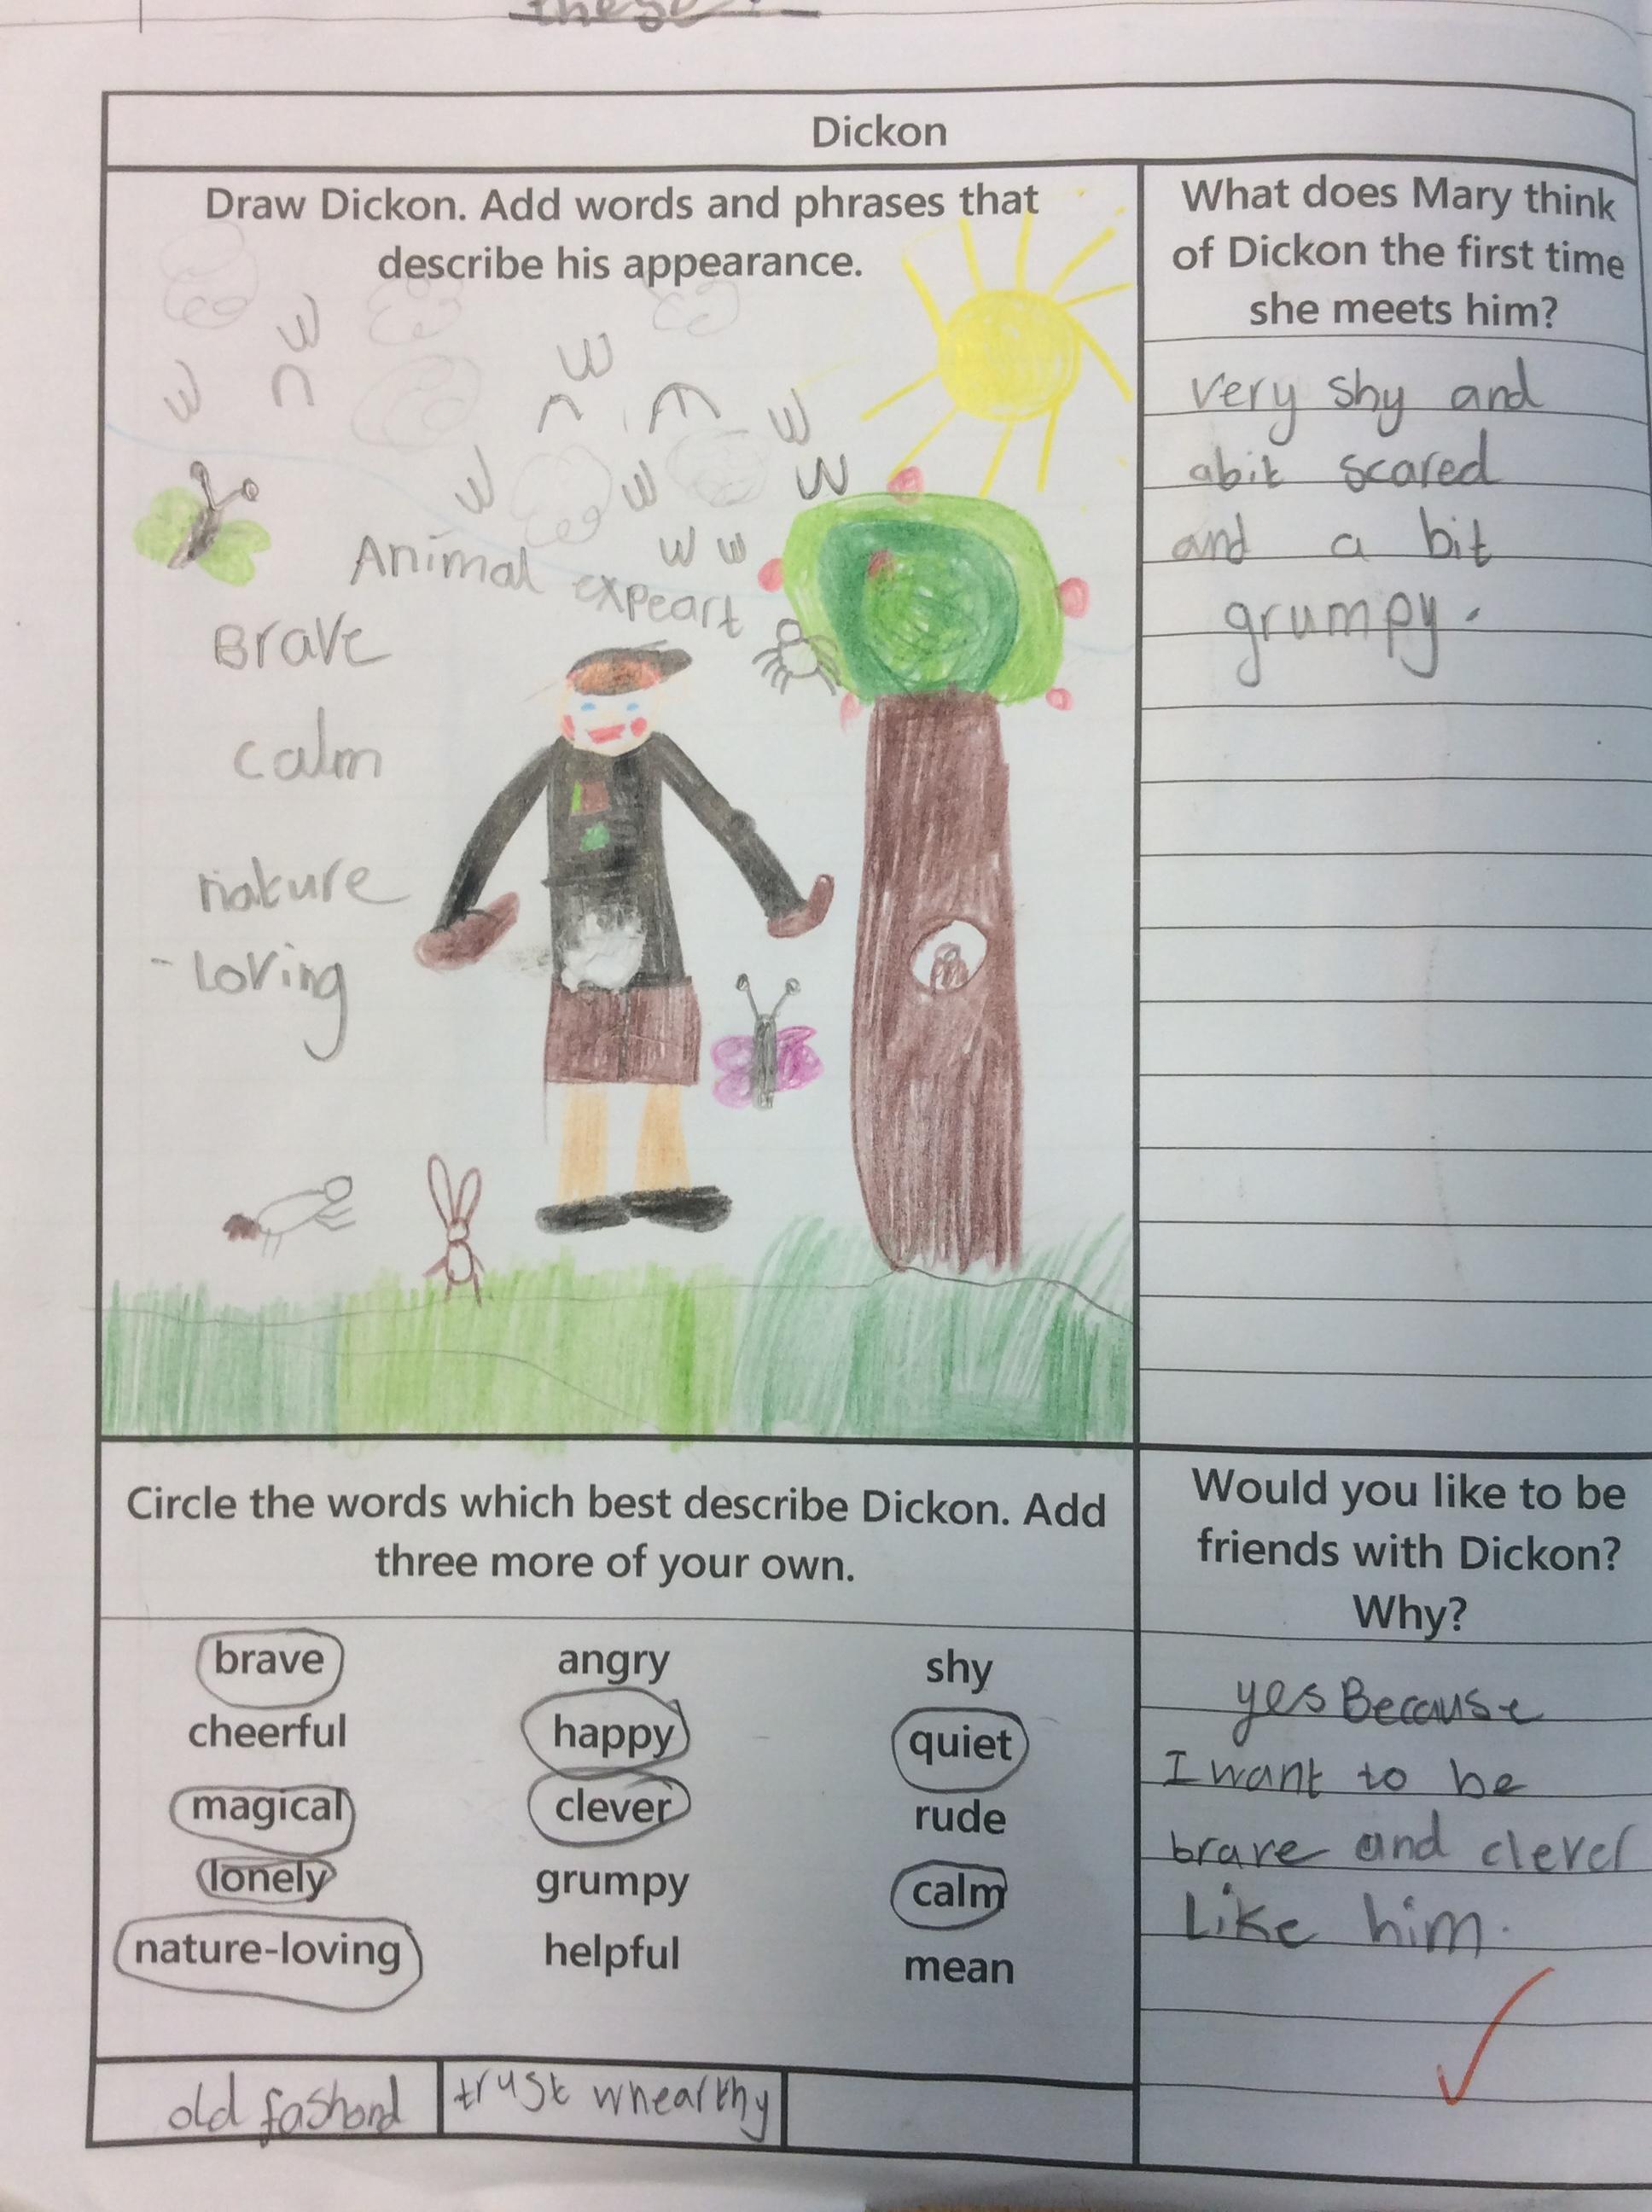 these
Dickon
Draw Dickon. Add words and phrases that
describe his appearance.
Animal expeart
Brave
calm
nature
-loving
What does Mary think
of Dickon the first time
she meets him?
very shy and
abit scared
and a bit
grumpy.
Circle the words which best describe Dickon. Add
three more of your own.
brave angry shy
cheerful happy quiet
magical clever rude
lonely grumpy calm
nature-loving helpful mean
old fashond trust whearthy
Would you like to be
friends with Dickon?
Why?
yes Because
I want to be
brave and clever
Like him.